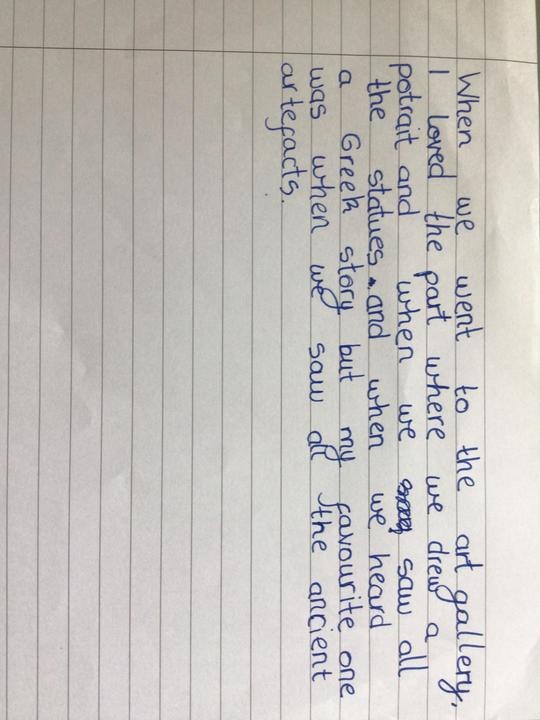 When we went to the art gallery,
I loved the part where we drew a
potrait and when we saw all
the statues and when we heard
a Greek story but my favourite one
was when we saw all the ancient
artefacts.